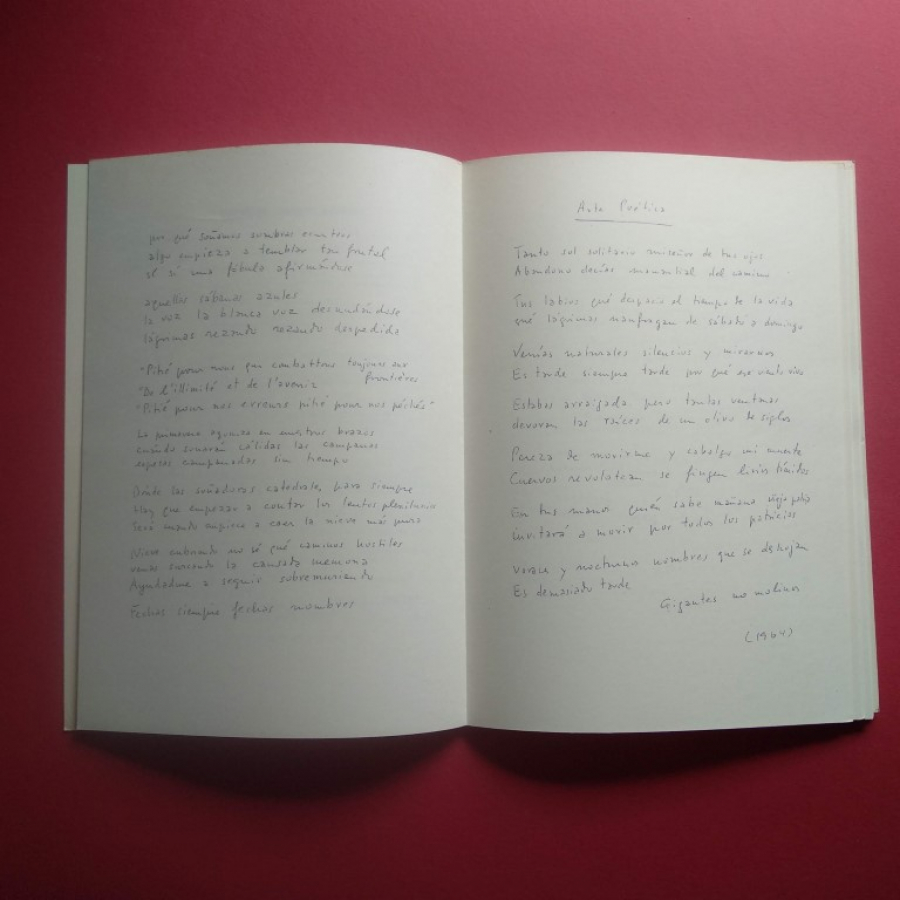 por qué soñamos sombras
algo empieza a temblar tan frontal
si una fábula afirmándose
aquellas sábanas azules
la voz la blanca voz desnudándose
lágrimas rezando rezando despedida
"Pitié pour nous qui combattons toujours aux
frontières
"De l'illimité et de l'avenir
"Pitié pour nos erreurs pitié pour nos péchés"
La primavera agoniza en nuestros brazos
cuándo sonarán cálidas las campanas
espesas campanadas sin tiempo
Dónde las soñadoras catedrales para siempre
Hay que empezar a contar los lentos plenilunios
Será cuando empiece a caer la nieve más pura
Nieve cubriendo no sé qué caminos hostiles
venas surcando la cansada memoria
Ayudadme a seguir sobremuriendo
Fechas siempre fechas nombres
Arte Poética
Tanto sol solitario ruiseñor de tus ojos
Abandono decías manantial del camino
Tus labios qué despacio el tiempo de la vida
qué lágrimas naufragan de sábado a domingo
Venías naturales silencios y
Es tarde siempre tarde por qué ese viento vivo
Estabas arraigada pero tantas ventanas
devoran las raíces de un olivo de siglos
Pereza de morirme y cabalga mi muerte
Cuervos revolotean se fingen lirios tímidos
En tus manos quién sabe mañana vieja patria
invitará a morir por todos los patricios
Voraces y nocturnos nombres que se deshojan
Es demasiado tarde
Gigantes no molinos
(1964)